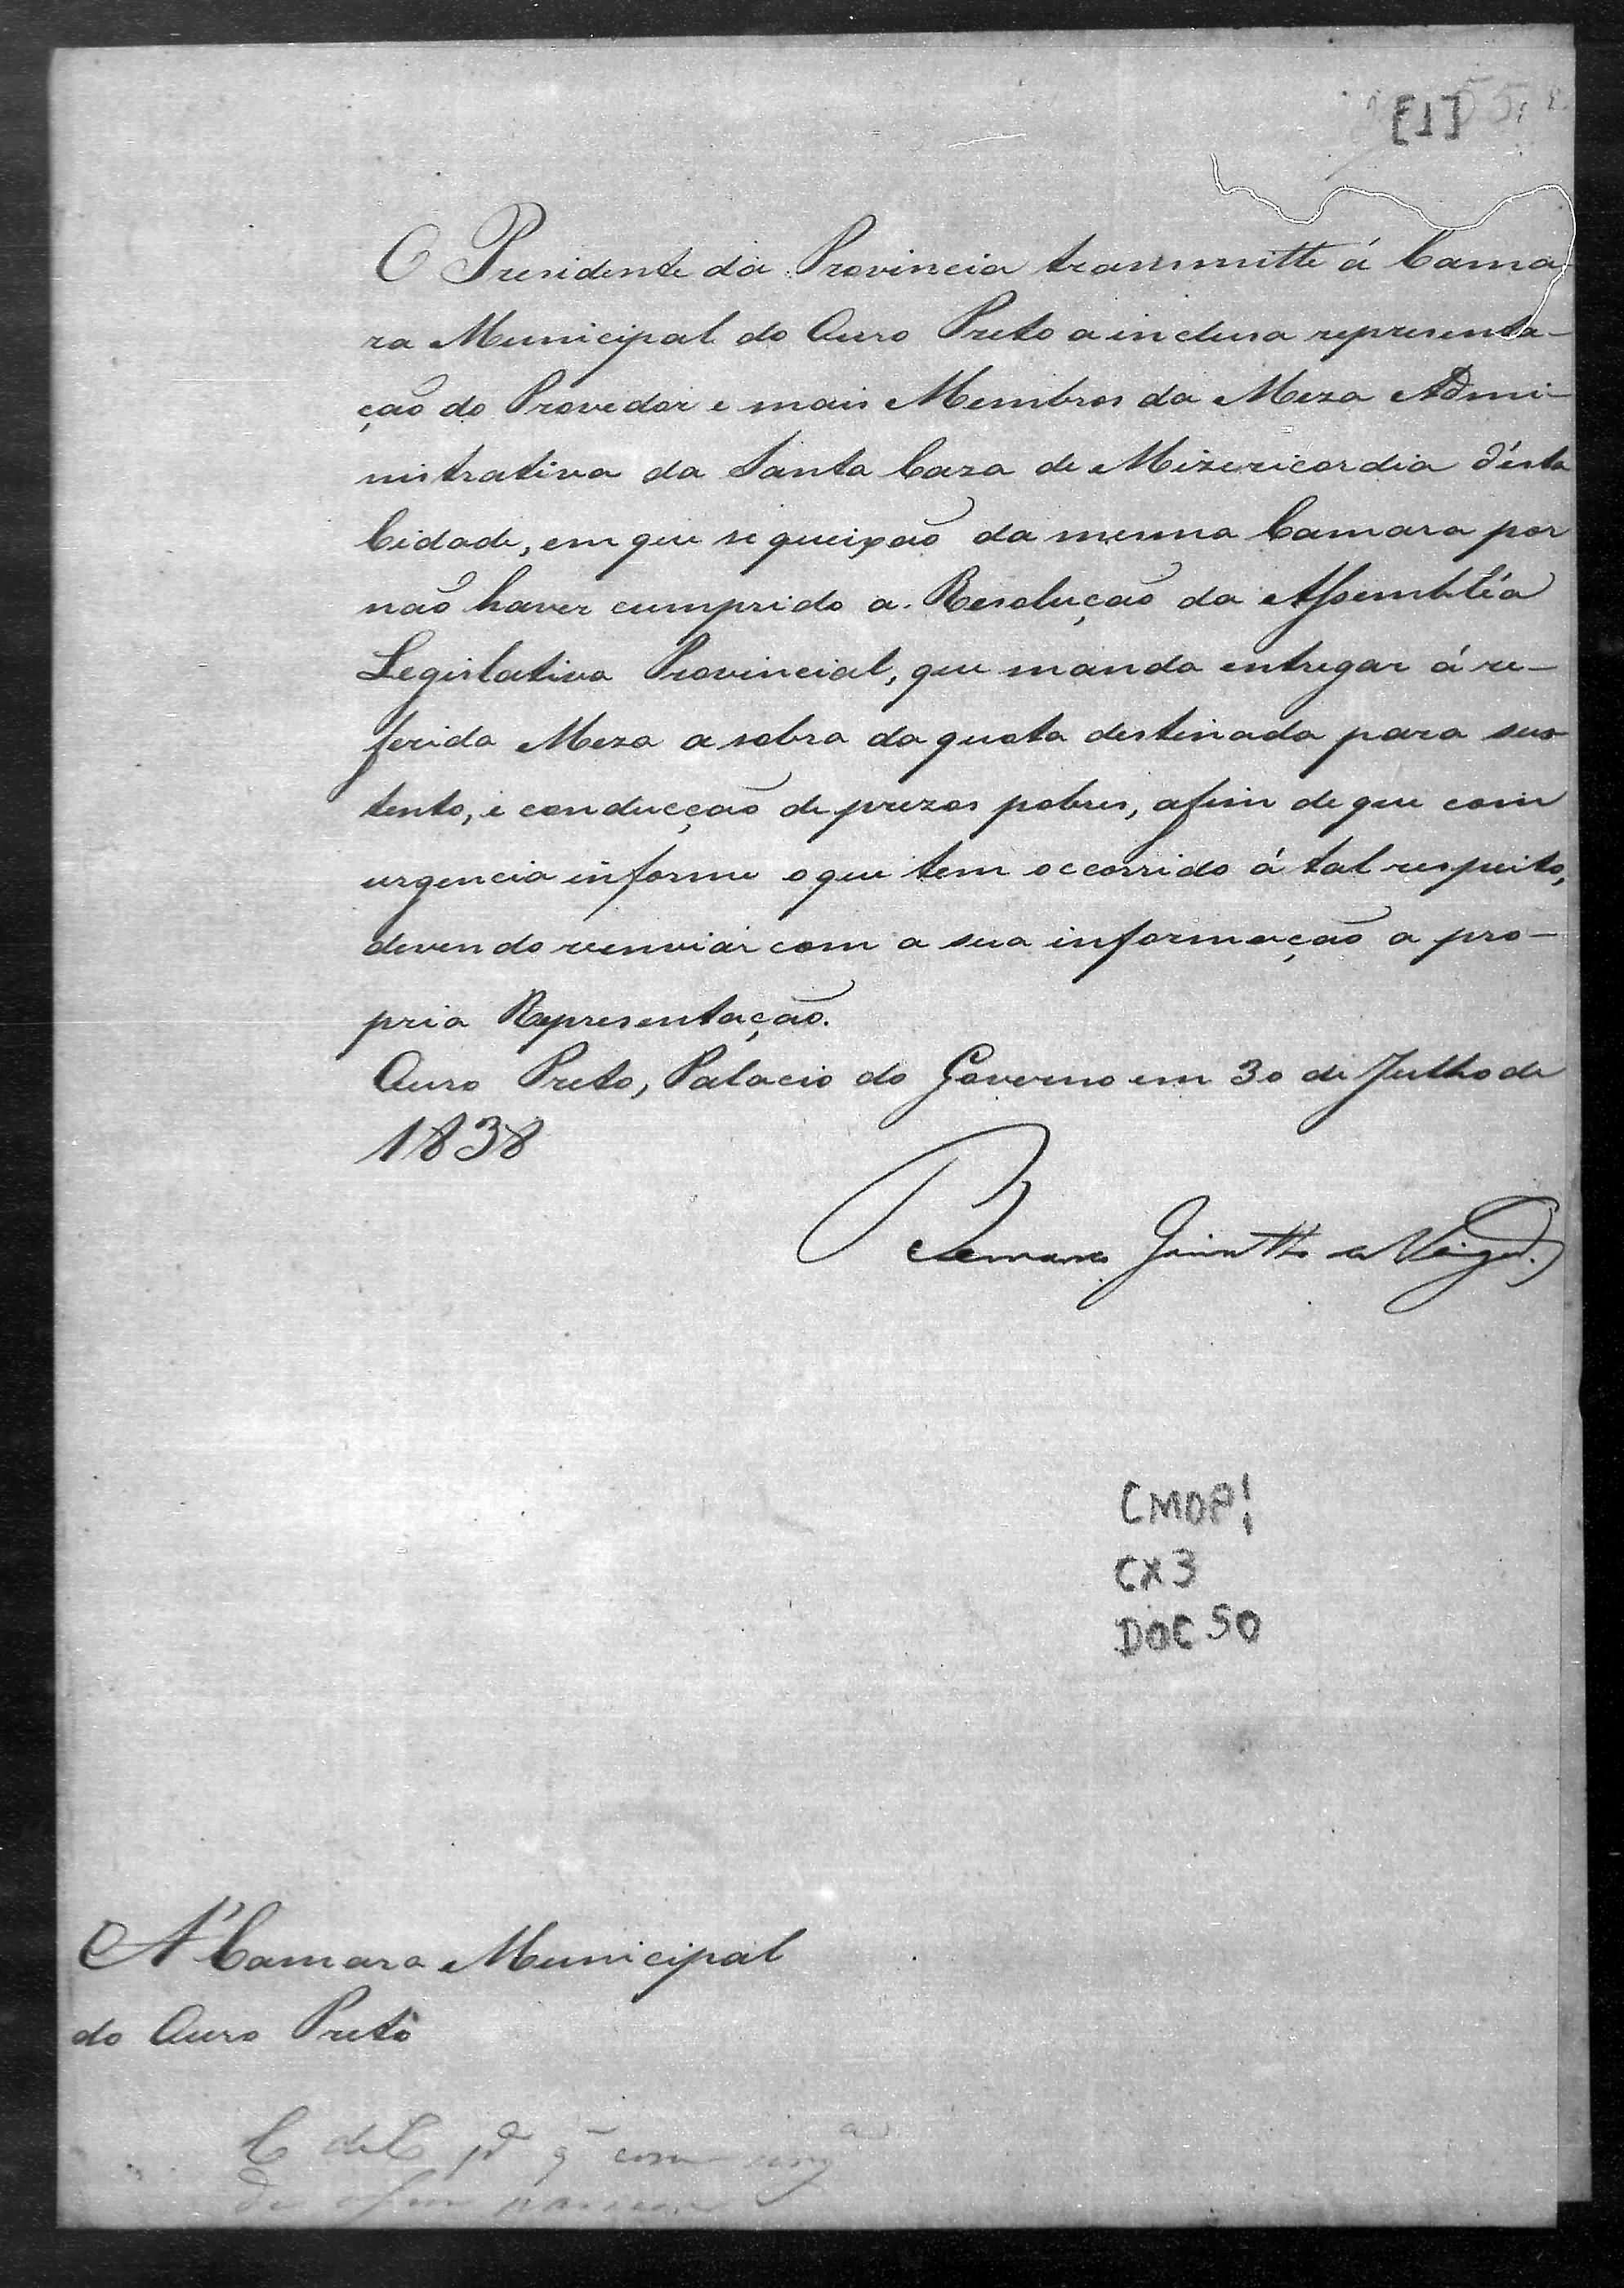 [1]
O Presidente da Provincia transmitte á Cama-
ra Municipal do Ouro Preto a inclusa representa-
ção do Provedor e mais Membros da Meza Admi-
nistrativa da Santa Caza de Mizericordia d'esta
Cidade, em que se queixão da mesma Camara por
não haver cumprido a Resolução da Assembléa
Legislativa Provincial, que manda entregar á re-
ferida Meza a sobra da quota destinada para sus-
tento, e conducção de prezos pobres, afim de que com
urgencia informe o que tem occorrido á tal respeito,
devendo reenviar com a sua informação a pro-
pria Representação.
Ouro Preto, Palacio do Governo em 30 de Julho de
1838
Bernardo Jacintho da Veiga
CMOP!
CX 3
DOC 50
A' Camara Municipal
do Ouro Preto
C de C pª q̃ com urgª